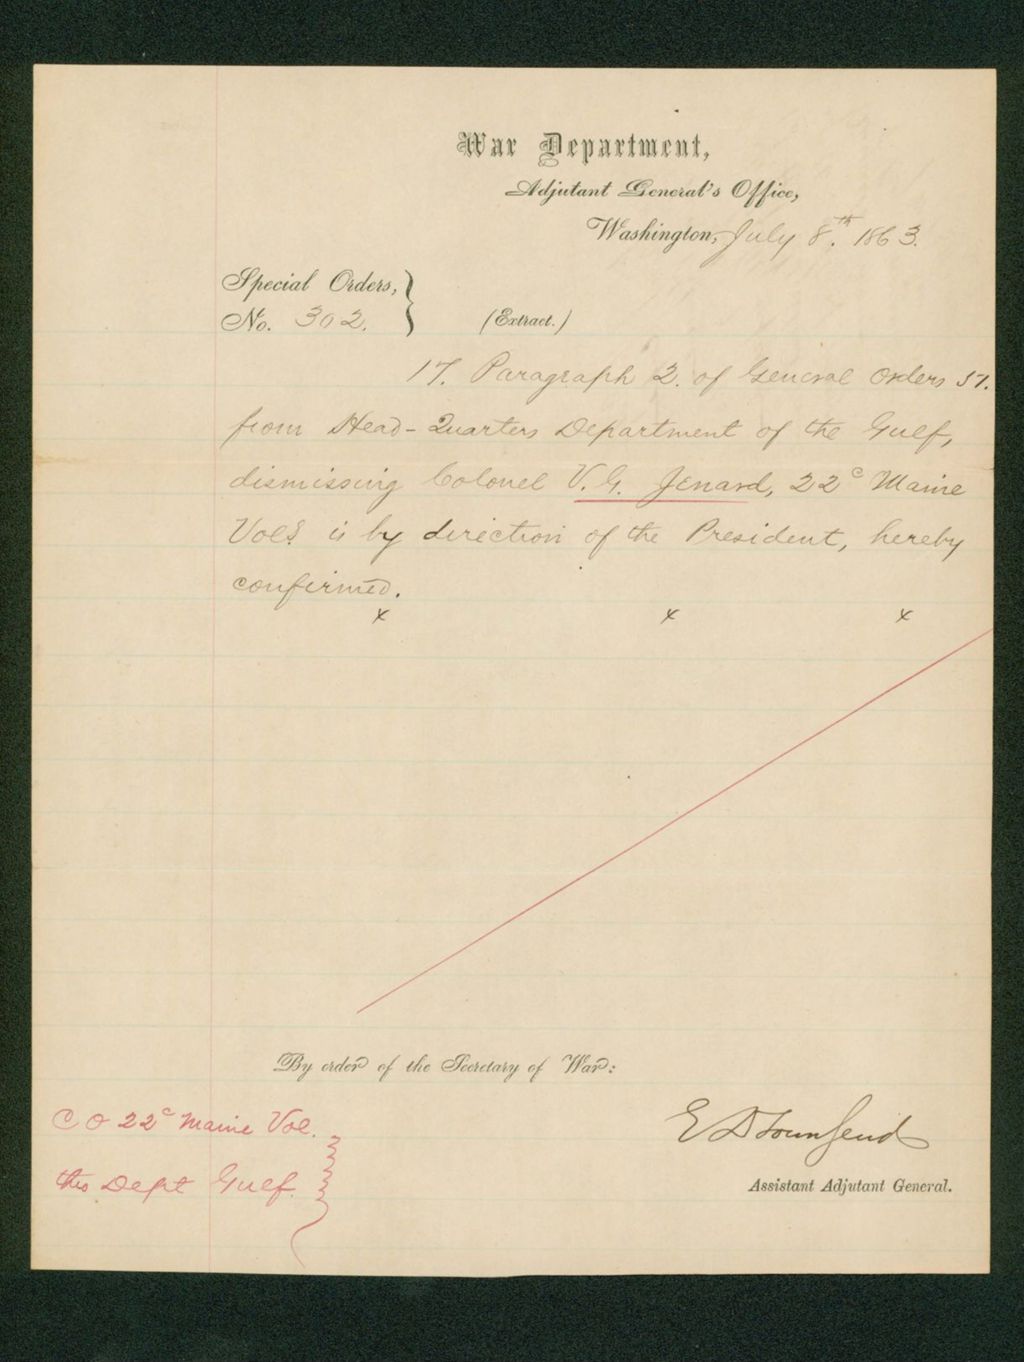 War Department,
Adjutant General's Office,
Washington, July 8.th 1863.
Special Orders,
No. 302.
(Extract.)
17. Paragraph 2. of General Orders 51.
from Head-Quarters Department of the Gulf,
dismissing Colonel V. G. Jenard, 22c Maine
Vols. is by direction of the President, hereby
confirmed.
x x x
By order of the Secretary of War:
E D Townsend
Assistant Adjutant General.
C O 22c Maine Vol.
thro Dept Gulf.